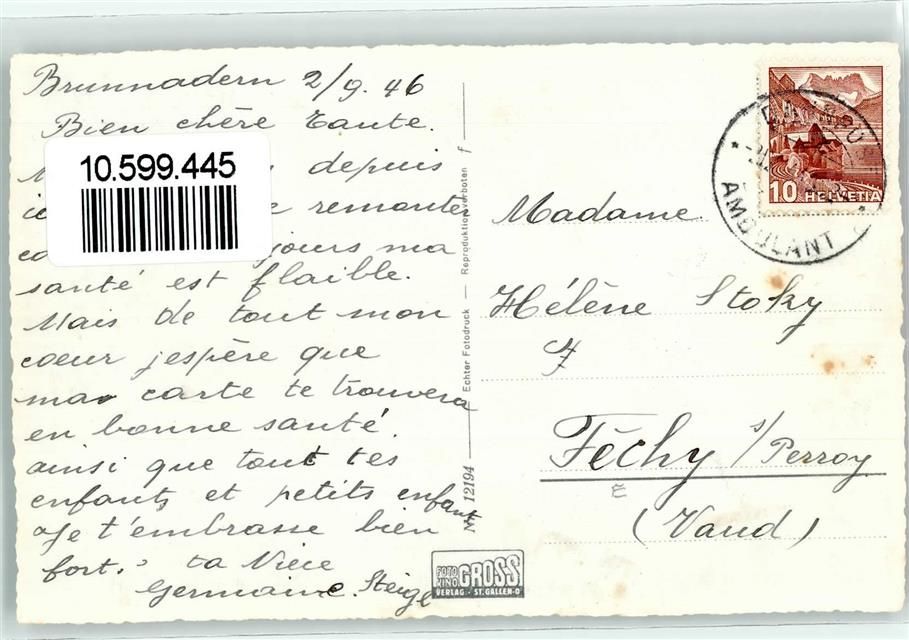 Brunnadern 2/9. 46
Bien chère Tante.
10.599.445
depuis
remonter
jours ma
santé est flaible.
Mais de tout mon
coeur jespère que
ma carte te trouvera
en bonne santé.
ainsi que tout tes
enfants et petits enfants
Je t'embrasse bien
fort. ta Nièce
Germaine. Steigl
Nr. 12194 — Echter Fotodruck — Reproduktion verboten f
FOTO KINO GROSS
VERLAG - ST. GALLEN-O
10 HELVETIA
AMBULANT
Madame
Hélène Stoky
Féchy s/Perroy
(Vaud)